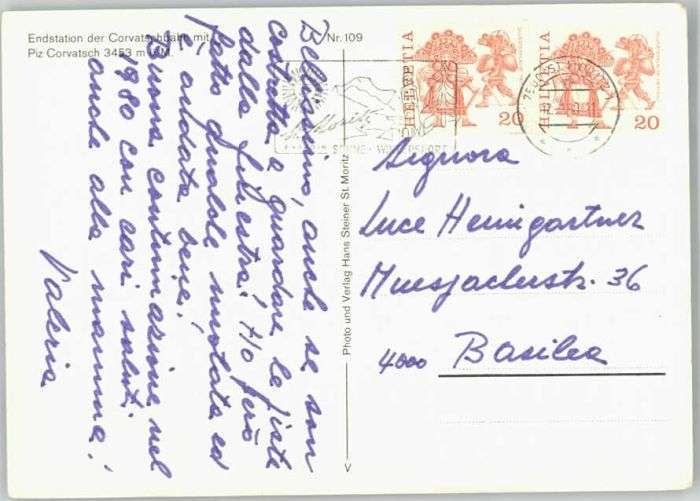 Endstation der Corvatschbahn mit
Piz Corvatsch 3453 m ü.M.
Nr. 109
Bellissimo, anche se son
costretta a guardare le piste
dalla finestra! Ho però
fatto qualche nuotata ed
è andata bene!
Buona continuazione nel
1980 con cari saluti
anche alla mamma!
Valeria
Photo und Verlag Hans Steiner St. Moritz
HELVETIA
20
HELVETIA
20
St. Moritz
Signora
Luce Heimgartner
Muespacherstr. 36
4000 Basilea